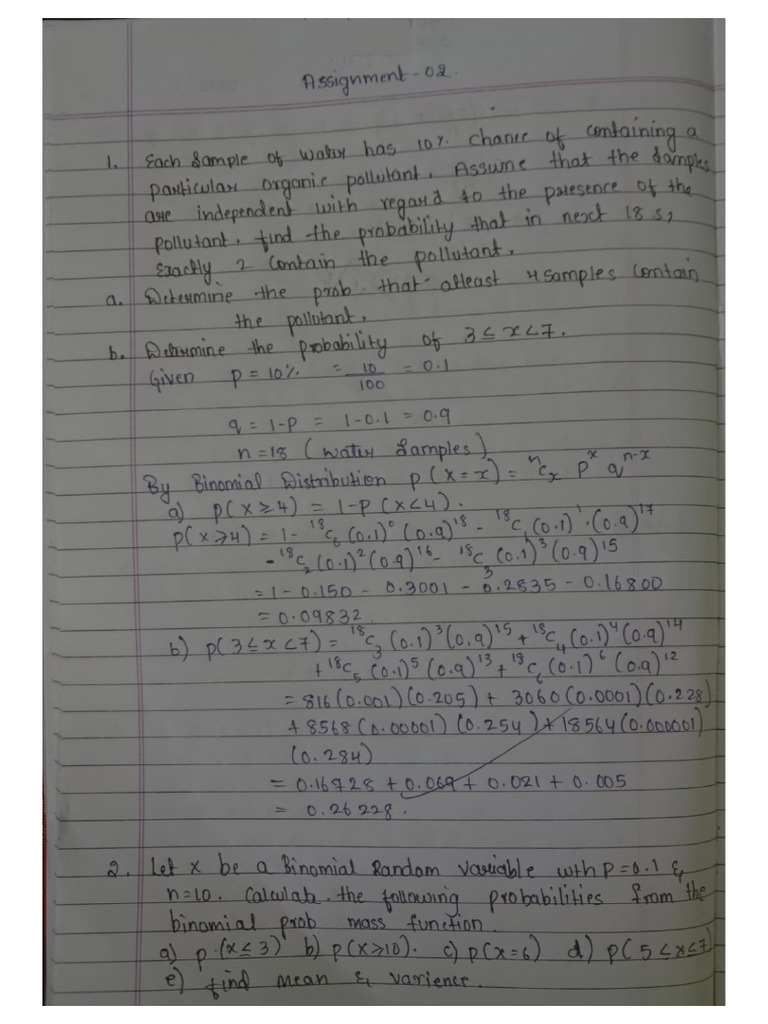 Assignment - 02.
1. Each Sample of water has 10% chance of containing a
particular organic pollutant. Assume that the samples
are independent with regard to the presence of the
pollutant. find the probability that in next 18 s,
Exactly 2 contain the pollutant.
a. Determine the prob that atleast 4 samples contain
the pollutant.
b. Determine the probability of 3 ≤ x < 7.
Given p = 10% = 10/100 = 0.1
q = 1-p = 1-0.1 = 0.9
n = 18 (water Samples)
By Binomial Distribution p(x = x) = ⁿCₓ pˣ qⁿ⁻ˣ
a) p(x ≥ 4) = 1-p(x<4).
p(x ≥ 4) = 1 - ¹⁸C₀ (0.1)⁰ (0.9)¹⁸ - ¹⁸C₁ (0.1)¹ . (0.9)¹⁷
- ¹⁸C₂ (0.1)² (0.9)¹⁶ - ¹⁸C₃ (0.1)³ (0.9)¹⁵
= 1 - 0.150 - 0.3001 - 0.2835 - 0.16800
= 0.09832
b) p(3 ≤ x < 7) = ¹⁸C₃ (0.1)³ (0.9)¹⁵ + ¹⁸C₄ (0.1)⁴ (0.9)¹⁴
+ ¹⁸C₅ (0.1)⁵ (0.9)¹³ + ¹⁸C₆ (0.1)⁶ (0.9)¹²
= 816 (0.001) (0.205) + 3060 (0.0001) (0.228)
+ 8568 (0.00001) (0.254) + 18564 (0.000001)
(0.284)
= 0.16728 + 0.069 + 0.021 + 0.005
= 0.26228.
2. Let x be a Binomial Random variable wth p = 0.1 &
n=10. Calculate the following probabilities from the
binomial prob mass function.
a) p.(x ≤ 3) b) p(x ≥ 10). c) p(x=6) d) p(5 ≤ x ≤ 7
e) find mean & varience.